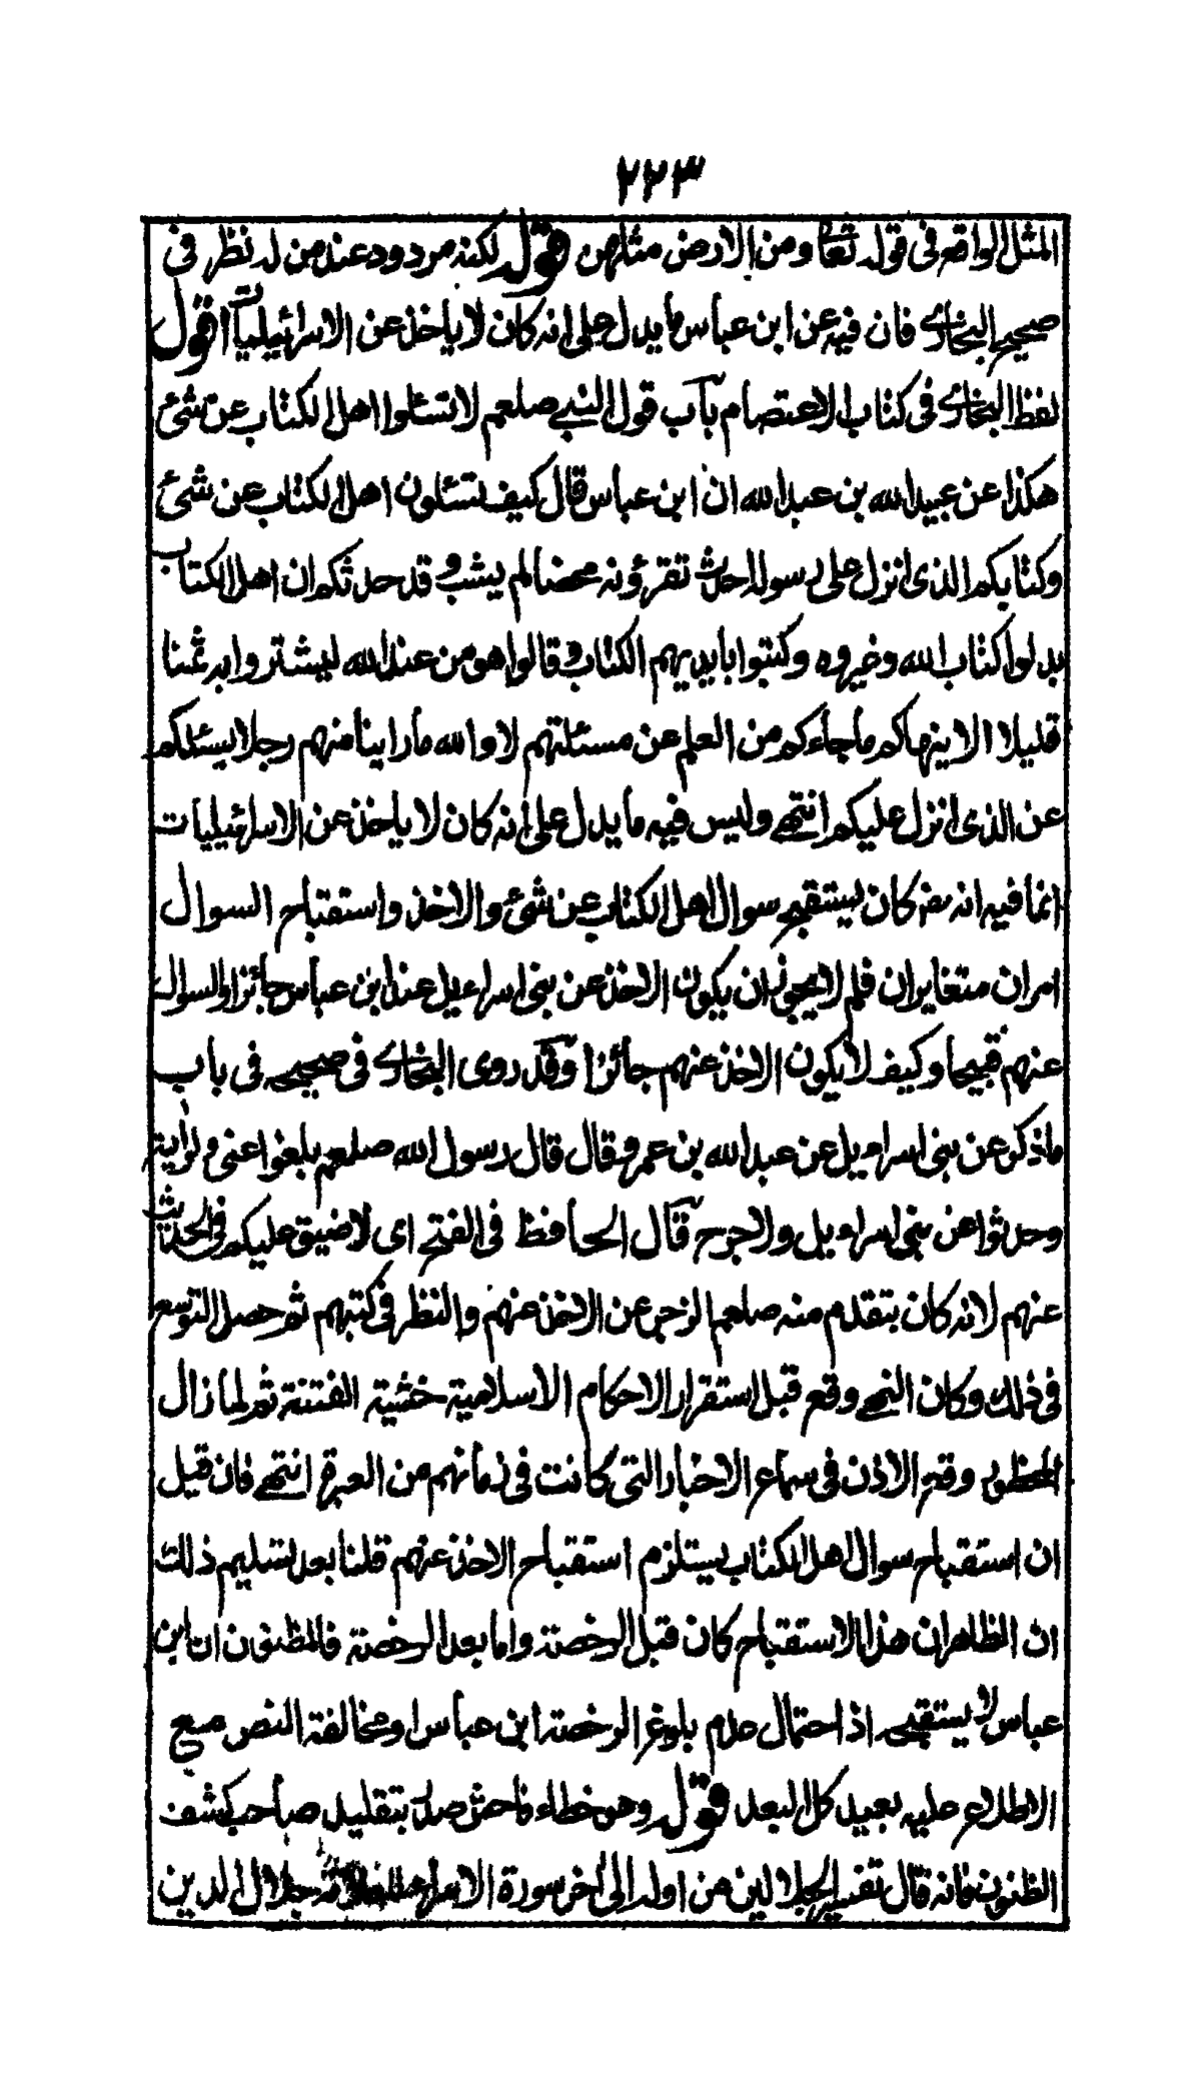 ٢٢٣
المثل الواقع فى قوله تعالى ومن الارض مثلهن قوله لكنه مردود عند من له نظر فى
صحيح البخارى فان فيه عن ابن عباس ما يدل على انه كان لا ياخذ عن الاسرائيليات اقول
لفظ البخارى فى كتاب الاعتصام باب قول النبى صلعم لا تسئلوا اهل الكتاب عن شئ
هكذا عن عبيد الله بن عبد الله ان ابن عباس قال كيف تسئلون اهل الكتاب عن شئ
وكتابكم الذى انزل على رسوله احدث تقرؤنه محضا لم يشب وقد حدثكم ان اهل الكتاب
بدلوا كتاب الله وغيروه وكتبوا بايديهم الكتاب وقالوا هو من عند الله ليشتروا به ثمنا
قليلا الا ينهاكم ما جاءكم من العلم عن مسئلتهم لا والله ما راينا منهم رجلا يسئلكم
عن الذى انزل عليكم انتهى وليس فيه ما يدل على انه كان لا ياخذ عن الاسرائيليات
انما فيه انه كان يستقبح سوال اهل الكتاب عن شئ والاخذ واستقباح السوال
امران متغايران فلم لا يجوز ان يكون الاخذ عن بنى اسراءيل عند ابن عباس جائزا والسوال
عنهم قبيحا وكيف لا يكون الاخذ عنهم جائزا وقد روى البخارى فى صحيحه فى باب
ما ذكر عن بنى اسراءيل عن عبد الله بن عمرو قال قال رسول الله صلعم بلغوا عنى ولو اية
وحدثوا عن بنى اسراءيل ولا حرج قال الحافظ فى الفتح اى لا ضيق عليكم فى الحديث
عنهم لانه كان يتقدم منه صلعم الزجر عن الاخذ عنهم والنظر فى كتبهم ثم حصل التوسع
فى ذلك وكان النهى وقع قبل استقرار الاحكام الاسلامية خشية الفتنة ثم لما زال
المحظور وقع الاذن فى سماع الاخبار التى كانت فى زمانهم من العبرة انتهى فان قيل
ان استقباح سوال اهل الكتاب يستلزم استقباح الاخذ عنهم قلنا بعد تسليم ذلك
ان الظاهر ان هذا الاستقباح كان قبل الرخصة واما بعد الرخصة فالمظنون ان ابن
عباس لا يستقبحه اذ احتمال عدم بلوغ الرخصة ابن عباس او مخالفة النص مع
الاطلاع عليه بعيد كل البعد قوله وهو خطاء فاحش صدر بتقليد صاحب كشف
الظنون فانه قال تفسير الجلالين من اوله الى اخر سورة الاسراء للعلامة جلال الدين